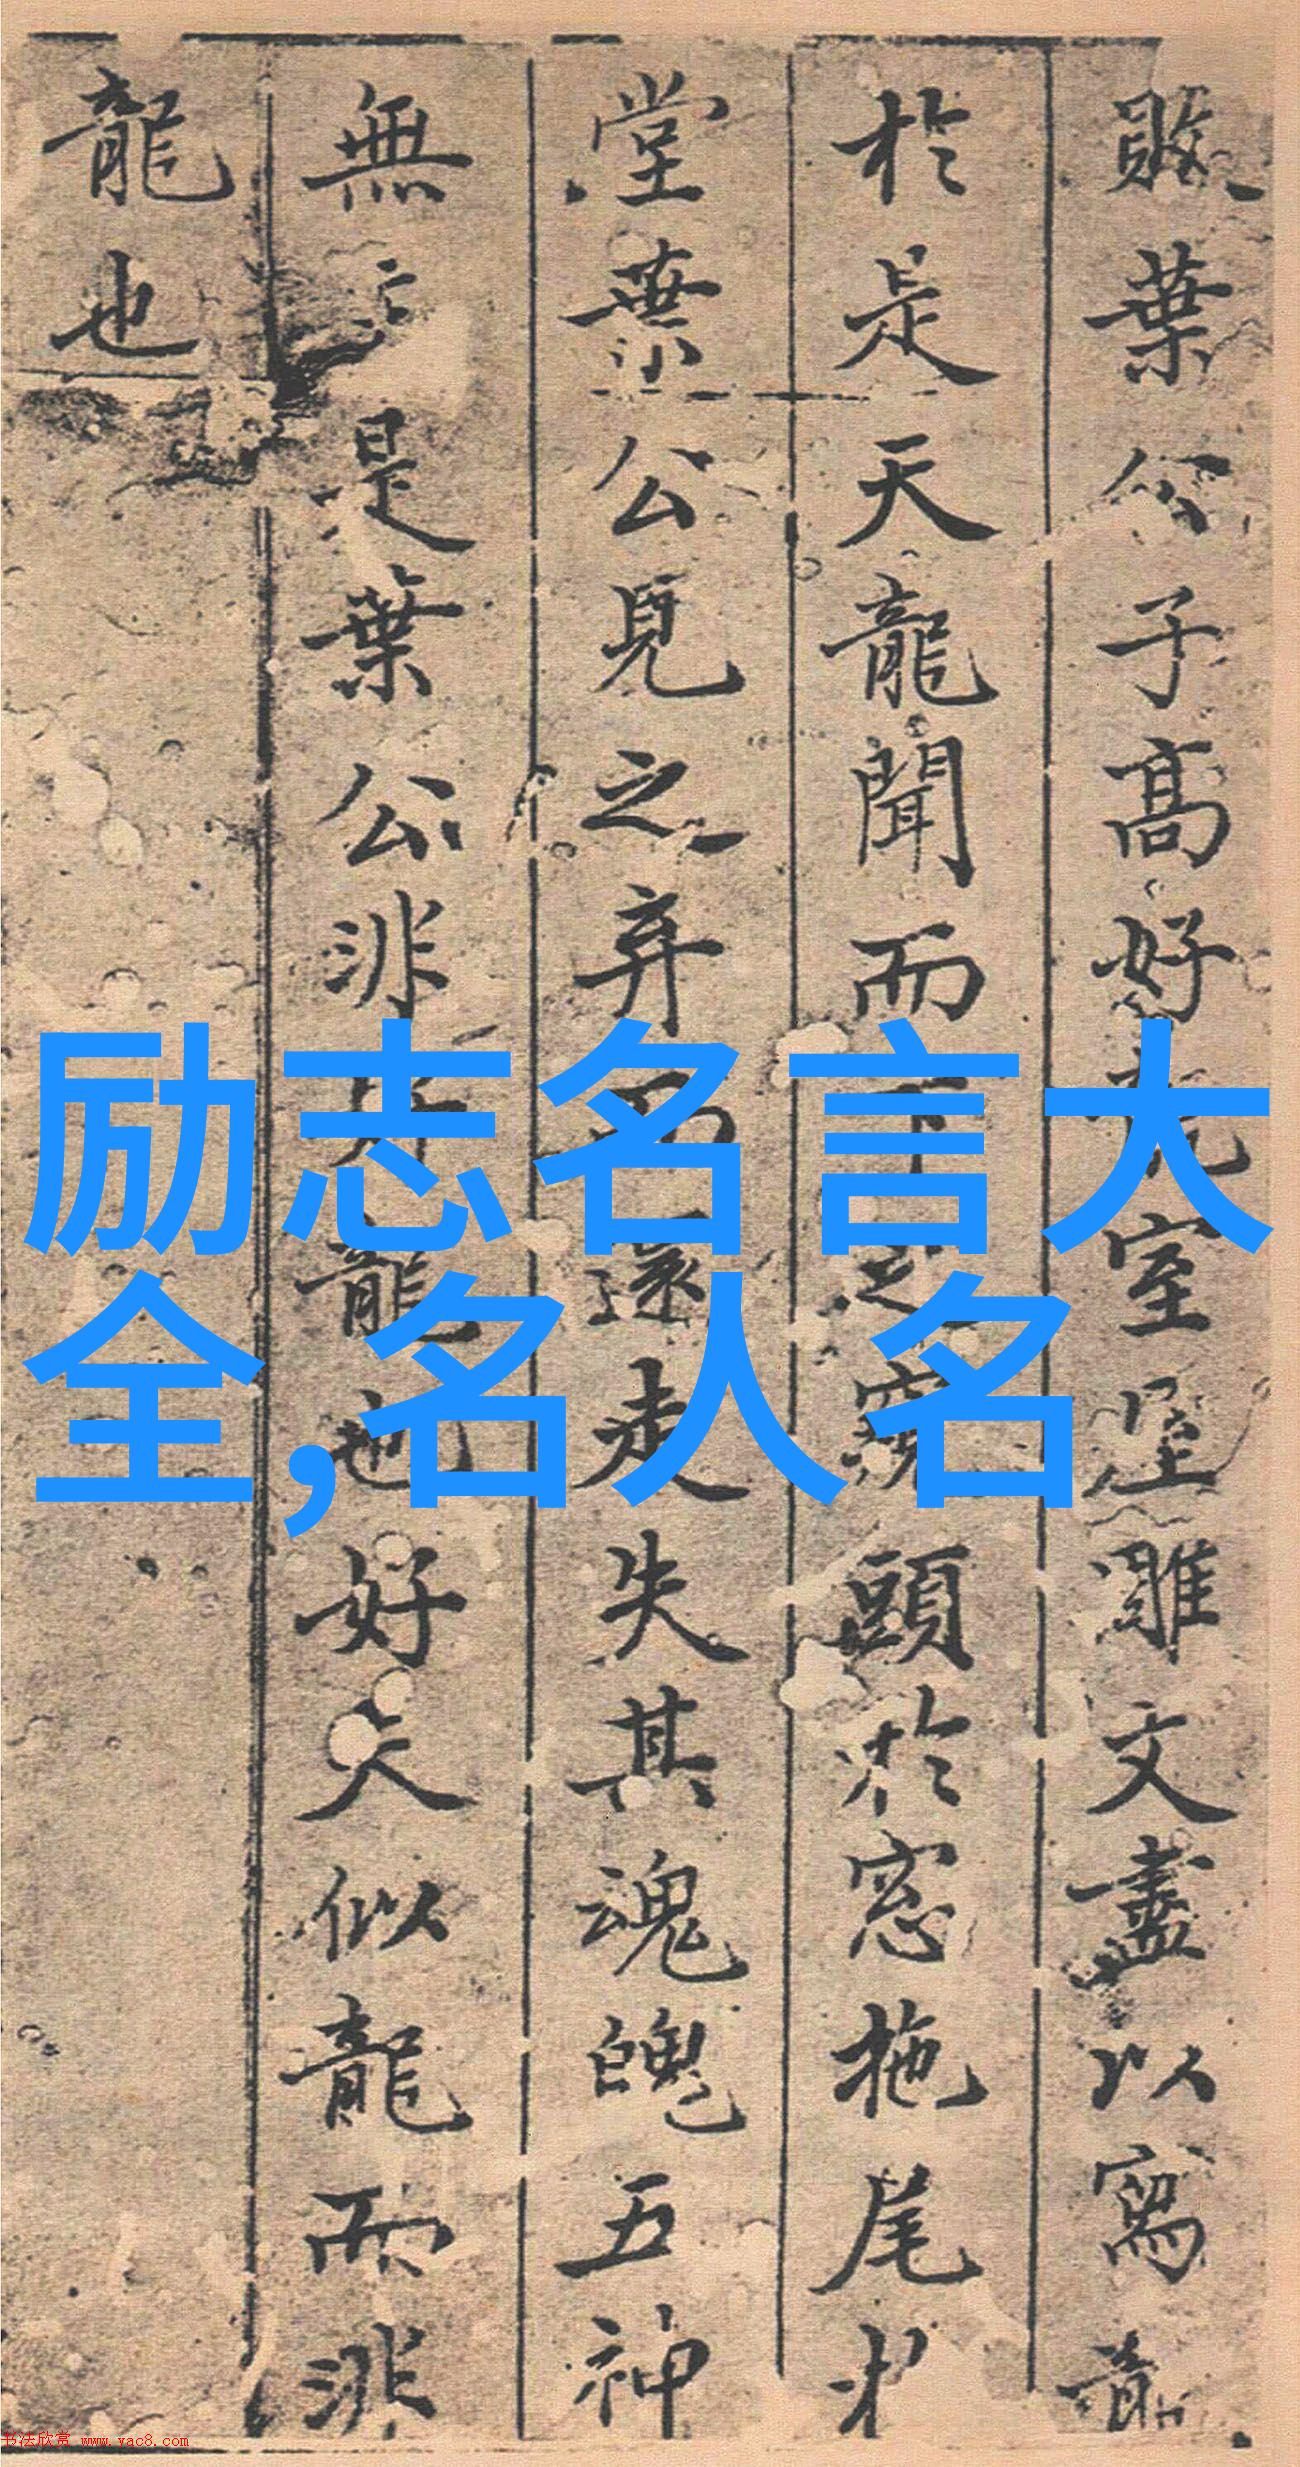 敗葉公子髙好龍室屋雕文盡以寫龍
於是天龍聞而下之窺頭於窓拖尾於
堂葉公見之弃而還走失其魂魄五神
無主是葉公非好龍也好夫似龍而非
龍也
励志名言大
全,名人名
书法欣赏 www.yac8.com